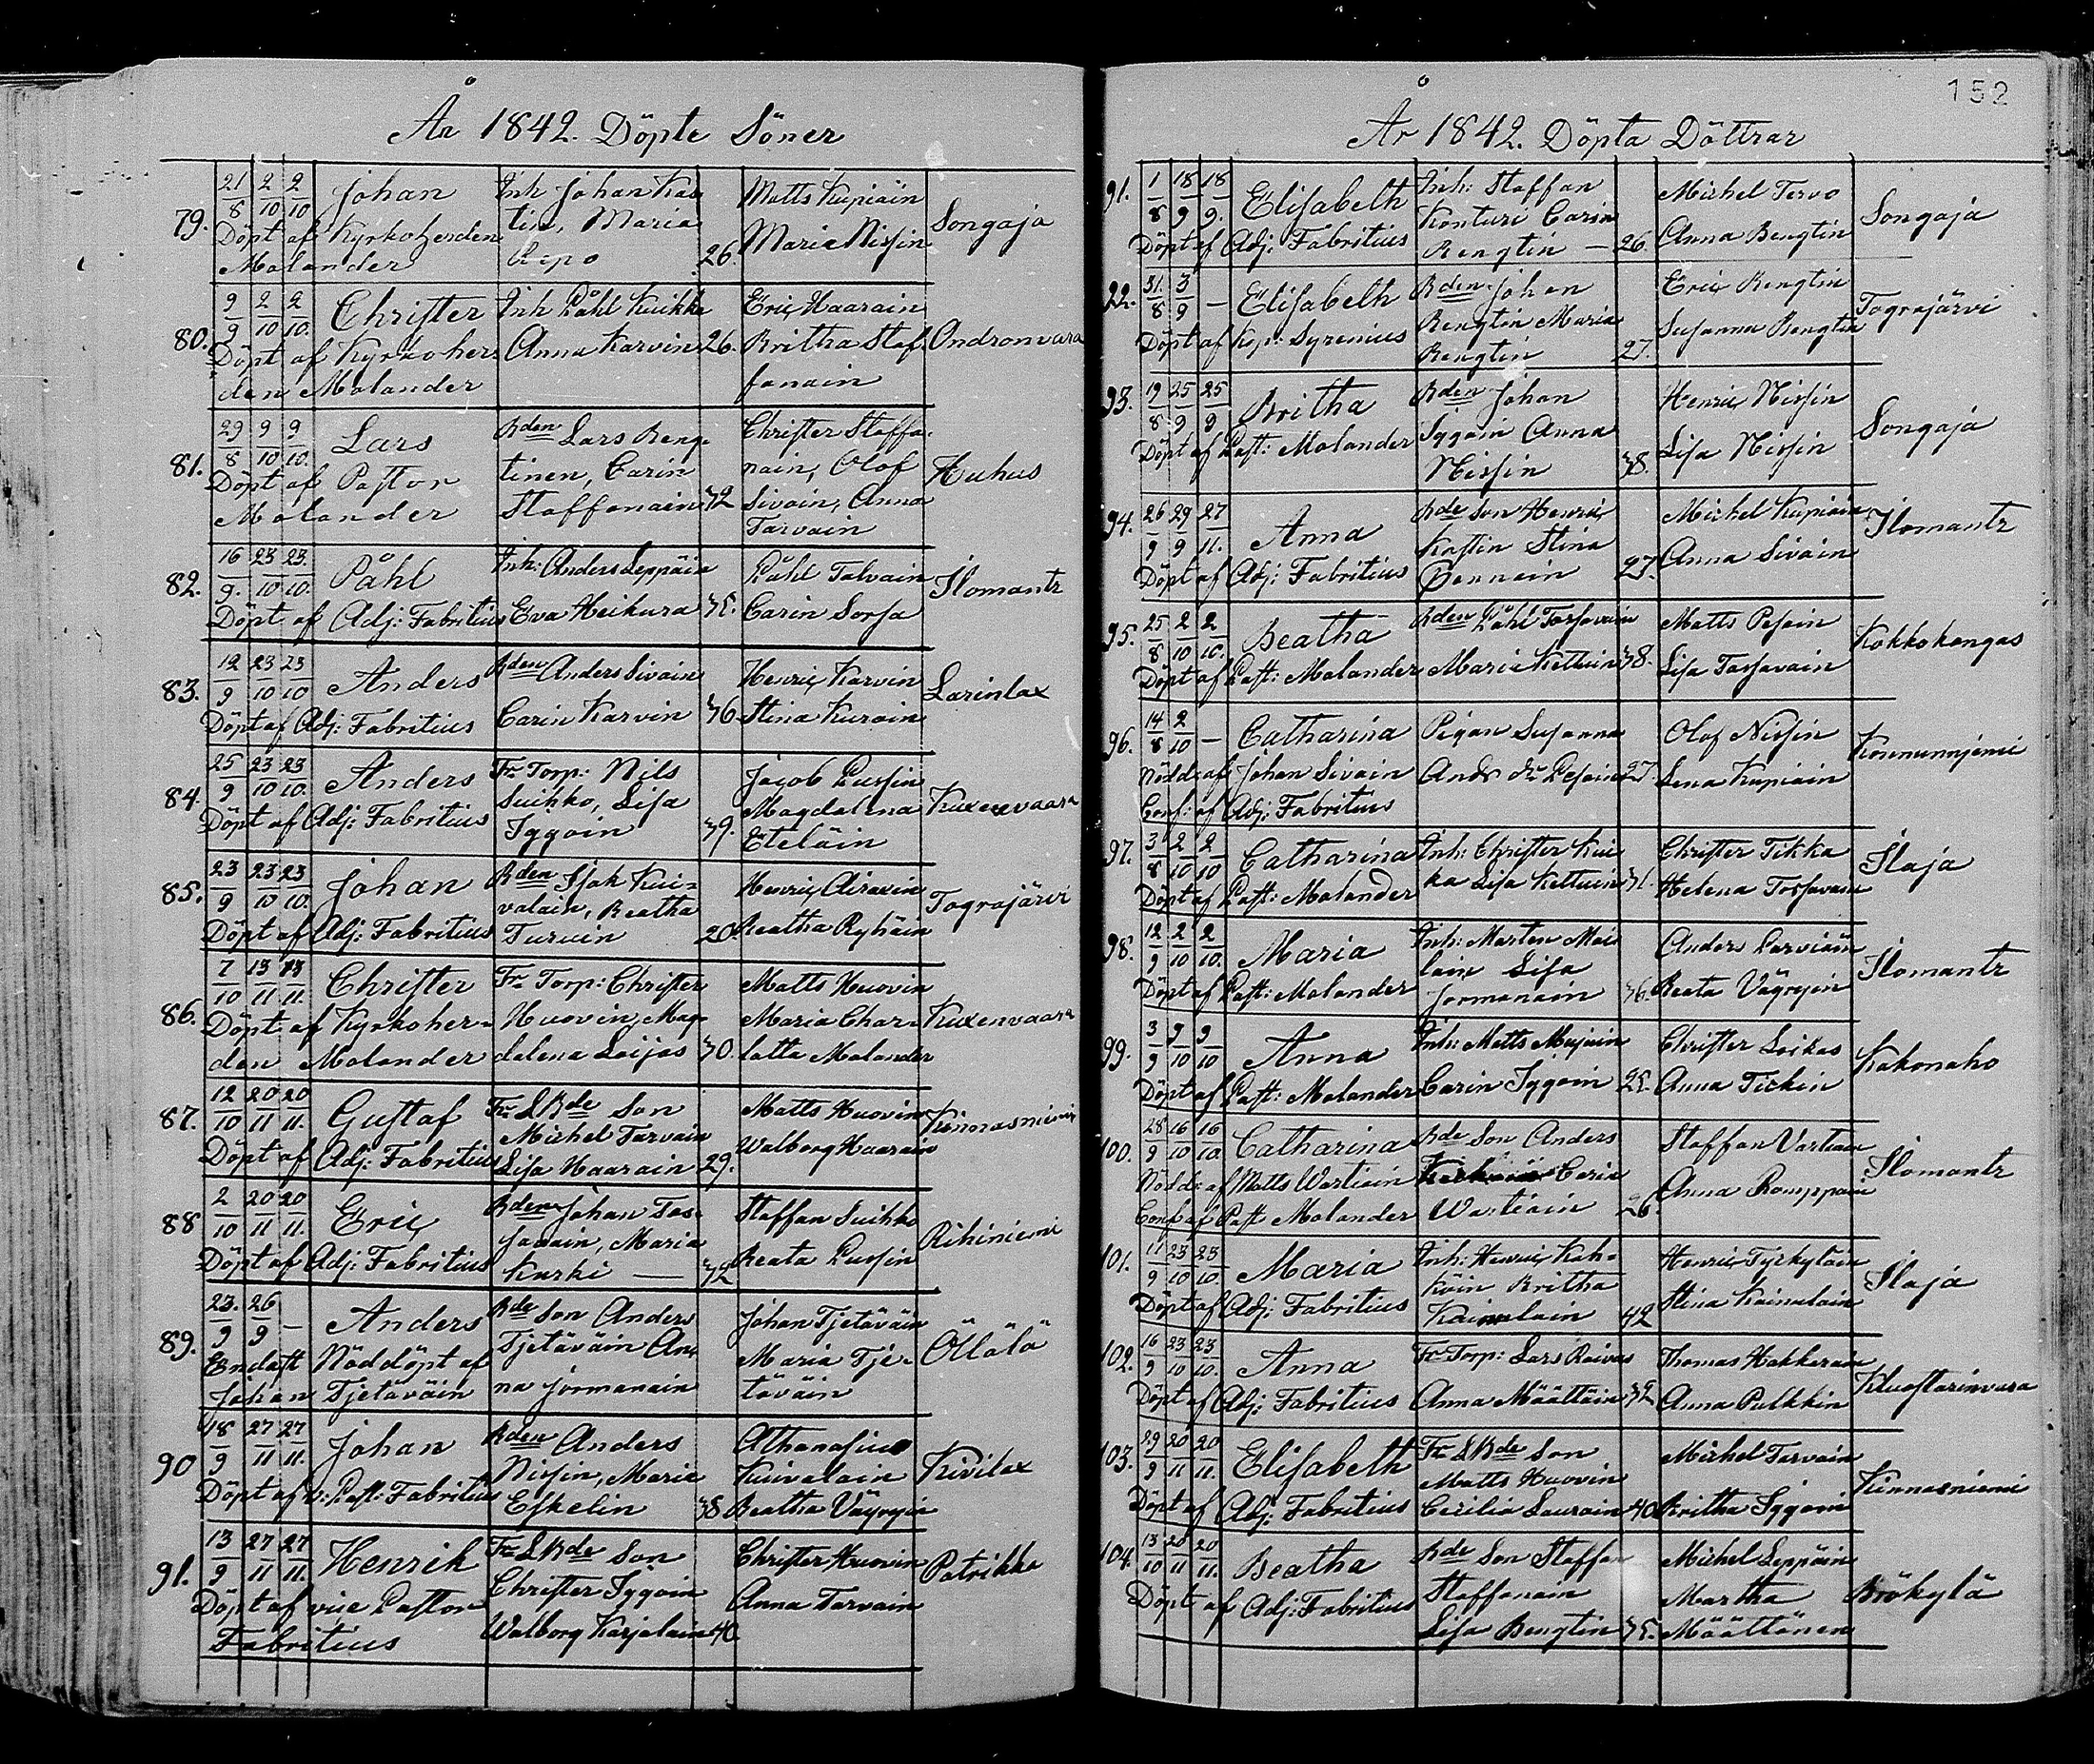 År 1842. Döpte Söner
79. 21/8 2/10 2/10 Johan
Döpt af Kyrkoherden
Molander
Inh Johan Kau
tin, Maria
Repo 26.
Matts Kupiäin
Maria Nissin
Songaja
80. 9/9 2/10 2/10. Christer
Döpt af Kyrkoher-
den Molander
Inh Påhl Kuikka
Anna Karvin 26.
Eric Haarain
Britha Staf
fanain
Ondronvara
81. 29/8 9/10 9/10. Lars
Döpt af Pastor
Molander
Rden Lars Reng-
tinen, Carin
Staffanain 42
Christer Staffa-
nain, Olof
Sivain, Anna
Tarvain
Huhus
82. 16/9. 23/10 23/10. Påhl
Döpt af Adj: Fabritius
Inh: Anders Leppäin
Eva Heikura 35.
Påhl Talvain
Carin Sorsa
Ilomants
83. 12/9 23/10 23/10 Anders
Döpt af Adj: Fabritius
Rden Anders Sivain
Carin Karvin 36
Henric Karvin
Stina Kurain
Larinlax
84. 25/9 23/10 23/10. Anders
Döpt af Adj: Fabritius
Fr Torp: Nils
Suihko, Lisa
Iggain 39.
Jacob Pussin
Magdalena
Eteläin
Kuxenvaara
85. 23/9 23/10 23/10. Johan
Döpt af Adj: Fabritius
Rden Isak Kui-
valain, Beatha
Turuin 20.
Henric Airaxin
Beatha Ryhäin
Tograjärvi
86. 7/10 13/11 13/11. Christer
Döpt af Kyrkoher-
den Molander
Fr Torp: Christer
Huovin, Mag-
dalena Loijas 30.
Matts Huovin
Maria Char-
lotta Molander
Kuxenvaara
87. 12/10 20/11 20/11. Gustaf
Döpt af Adj: Fabritius
Fr SRde Son
Michel Tarvain
Lisa Haarain 29.
Matts Huovin
Walborg Haarain
Kinnasniemi
88 2/10 20/11 20/11. Eric
Döpt af Adj: Fabritius
Rden Johan Tos-
savain, Maria
Kurki — 32
Staffan Suihko
Beata Pussin
Rihiniemi
89. 23./9 26/9 — Anders
Endast Nöddöpt af
Johan Tjetäväin
Rde son Anders
Tjetäväin An-
na Jormanain
Johan Tjetäväin
Maria Tje-
täväin
Öllölä
90 18/9 27/11 27/11. Johan
Döpt af v: Past: Fabritius
Rden Anders
Nissin, Maria
Eskelin 38
Athanasius
Kuivalain
Beatha Väyryin
Kivilax
91. 13/9 27/11 27/11. Henrik
Döpt af vice Pastor
Fabritius
Fr SRde Son
Christer Iggain
Walborg Karjalain 40
Christer Huovin
Anna Tarvain
Patrikka
152
År 1842. Döpta Döttrar
91. 1/8 18/9 18/9. Elisabeth
Döpt af Adj: Fabritius
Inh: Staffan
Konturi Carin
Rengtin — 26.
Michel Tervo
Anna Bengtin
Songaja
22. 31./8 3/9 — Elisabeth
Döpt af Kp: Syrenius
Rden Johan
Rengtin Maria
Rengtin 27.
Eric Rengtin
Susanna Rengtin
Tograjärvi
93. 19/8 25/9 25/9 Britha
Döpt af Past: Molander
Rden Johan
Iggain Anna
Nissin 38.
Henric Nissin
Lisa Nissin
Songaja
94. 26/9 29/9 27/11. Anna
Döpt af Adj: Fabritius
Rde Son Henric
Kostin Stina
Pennain 27.
Michel Kupiain
Anna Sivain
Ilomants
95. 25/8 2/10 2/10. Beatha
Döpt af Past: Molander
Rden Påhl Tossavain
Maria Kettuin 38.
Matts Pesain
Lisa Tossavain
Kokkokangas
96. 14/8 2/10 — Catharina
Nödd: af Johan Sivain
Conf: af Adj: Fabritius
Pigan Susanna
Olof Nissin
Lena Kupiain
97. 3/8 2/10 2/10 Catharina
Döpt af Past: Molander
Inh: Christer Kui
ka Lisa Kettuin 31.
Christer Tikka
Helena Tossavain
Ilaja
98. 12/9 2/10 2/10. Maria
Döpt af Past: Molander
Inh: Morten Moi
lain Lisa
Jormanain 36.
Anders Parviäin
Beata Väyryin
Ilomants
99. 3/9 9/10 9/10 Anna
Döpt af Past: Molander
Inh: Matts Mujuin
Carin Iggain 25.
Christer Loikas
Anna Tickin
Kakonaho
100. 28/9 16/10 16/10 Catharina
Nödd: af Matts Wartiain
Conf af Past Molander
Rde Son Anders
Carin
Wartiain 26.
Staffan Vartiain
Anna Romppain
Ilomants
101. 11/9 23/10 23/10. Maria
Döpt af Adj: Fabritius
Inh: Henric Koh-
koin Britha
Kainulain 42
Henric Tyrkyläin
Stina Kainulain
Ilaja
102. 16/9 23/10 23/10. Anna
Döpt af Adj: Fabritius
Fr Torp: Lars Raivas
Anna Määttäin 32
Thomas Hakkarain
Anna Pulkkin
Kluostarinvara
103. 29/9 20/11 20/11. Elisabeth
Döpt af Adj: Fabritius
Fr SRde Son
Matts Huovin
Cecilia Laurain 40
Michel Tarvain
Britha Iggain
Kinnasniemi
104. 13/10 20/11 20/11. Beatha
Döpt af Adj: Fabritius
Rde Son Staffan
Staffanain
Lisa Bengtin 35.
Michel Leppäin
Martha
Määttänen
Brökylä